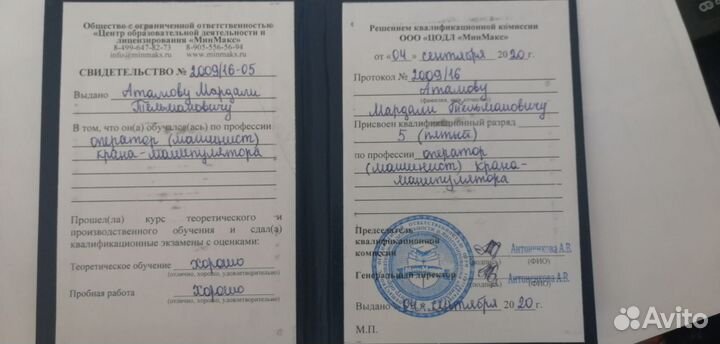 Общество с ограниченной ответственностью
«Центр образовательной деятельности и
лицензирования «МинМакс»
8-499-647-82-73 8-905-556-56-94
info@minmaks.ru www.minmaks.ru
СВИДЕТЕЛЬСТВО № 2009/16-05
Выдано Атамову Мардали
Тельмановичу
В том, что он(а) обучался(ась) по профессии
оператор (машинист)
крана-манипулятора
Прошел(ла) курс теоретического и
производственного обучения и сдал(а)
квалификационные экзамены с оценками:
Теоретическое обучение хорошо
(отлично, хорошо, удовлетворительно)
Пробная работа хорошо
(отлично, хорошо, удовлетворительно)
Решением квалификационной комиссии
ООО «ЦОДЛ «МинМакс»
от «04» сентября 2020 г.
Протокол № 2009/16
Атамову
(фамилия, имя, отчество)
Мардали Тельмановичу
Присвоен квалификационный разряд
5 (пятый)
по профессии оператор
(машинист) крана-
манипулятора
Председатель
квалификационной
комиссии Антоненкова А.В.
(подпись) (ФИО)
Генеральный директор Антоненкова А.В.
(подпись) (ФИО)
Выдано «04» сентября 2020 г.
М.П.
Avito